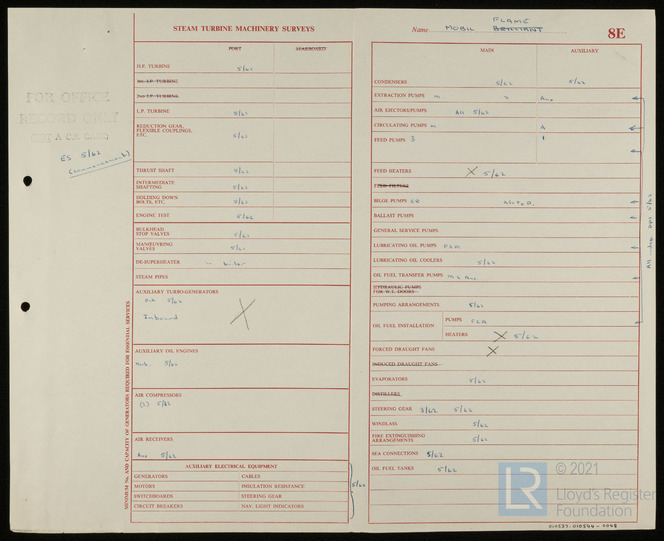 STEAM TURBINE MACHINERY SURVEYS
PORT
STARBOARD
H.P. TURBINE 5/62
1ST I.P. TURBINE
2ND I.P. TURBINE
L.P. TURBINE 5/62
REDUCTION GEAR,
FLEXIBLE COUPLINGS,
ETC. 5/62
THRUST SHAFT 5/62
INTERMEDIATE
SHAFTING 5/62
HOLDING DOWN
BOLTS, ETC. 5/62
ENGINE TEST 5/62
BULKHEAD
STOP VALVES 5/62
MANŒUVRING
VALVES 5/62
DE-SUPERHEATER
STEAM PIPES
AUXILIARY TURBO-GENERATORS
5/62
Inboard
AUXILIARY OIL ENGINES
5/62
AIR COMPRESSORS
(2) 5/62
AIR RECEIVERS
Aux 5/62
AUXILIARY ELECTRICAL EQUIPMENT
GENERATORS CABLES
MOTORS INSULATION RESISTANCE
SWITCHBOARDS STEERING GEAR
CIRCUIT BREAKERS NAV. LIGHT INDICATORS
5/62
MINIMUM No. AND CAPACITY OF GENERATORS REQUIRED FOR ESSENTIAL SERVICES
FOR OFFICE
RECORD ONLY
NOT A C.S. CARD
ES 5/62
(commenced)
FLAME
Name MOBIL BRILLIANT
8E
MAIN
AUXILIARY
CONDENSERS 5/62 5/62
EXTRACTION PUMPS M Aux
AIR EJECTOR/PUMPS All 5/62
CIRCULATING PUMPS M A
FEED PUMPS 3 1
FEED HEATERS X 5/62
FEED FILTERS
BILGE PUMPS ER
BALLAST PUMPS
GENERAL SERVICE PUMPS
LUBRICATING OIL PUMPS
LUBRICATING OIL COOLERS 5/62
OIL FUEL TRANSFER PUMPS M & Aux
HYDRAULIC PUMPS
FOR W.T. DOORS
PUMPING ARRANGEMENTS 5/62
OIL FUEL INSTALLATION
PUMPS
HEATERS X 5/62
FORCED DRAUGHT FANS X
INDUCED DRAUGHT FANS
EVAPORATORS 5/62
DISTILLERS
STEERING GEAR 3/62 5/62
WINDLASS 5/62
FIRE EXTINGUISHING
ARRANGEMENTS 5/62
SEA CONNECTIONS 5/62
OIL FUEL TANKS 5/62
LR
© 2021
Lloyd's Register
Foundation
010537-010544-0048